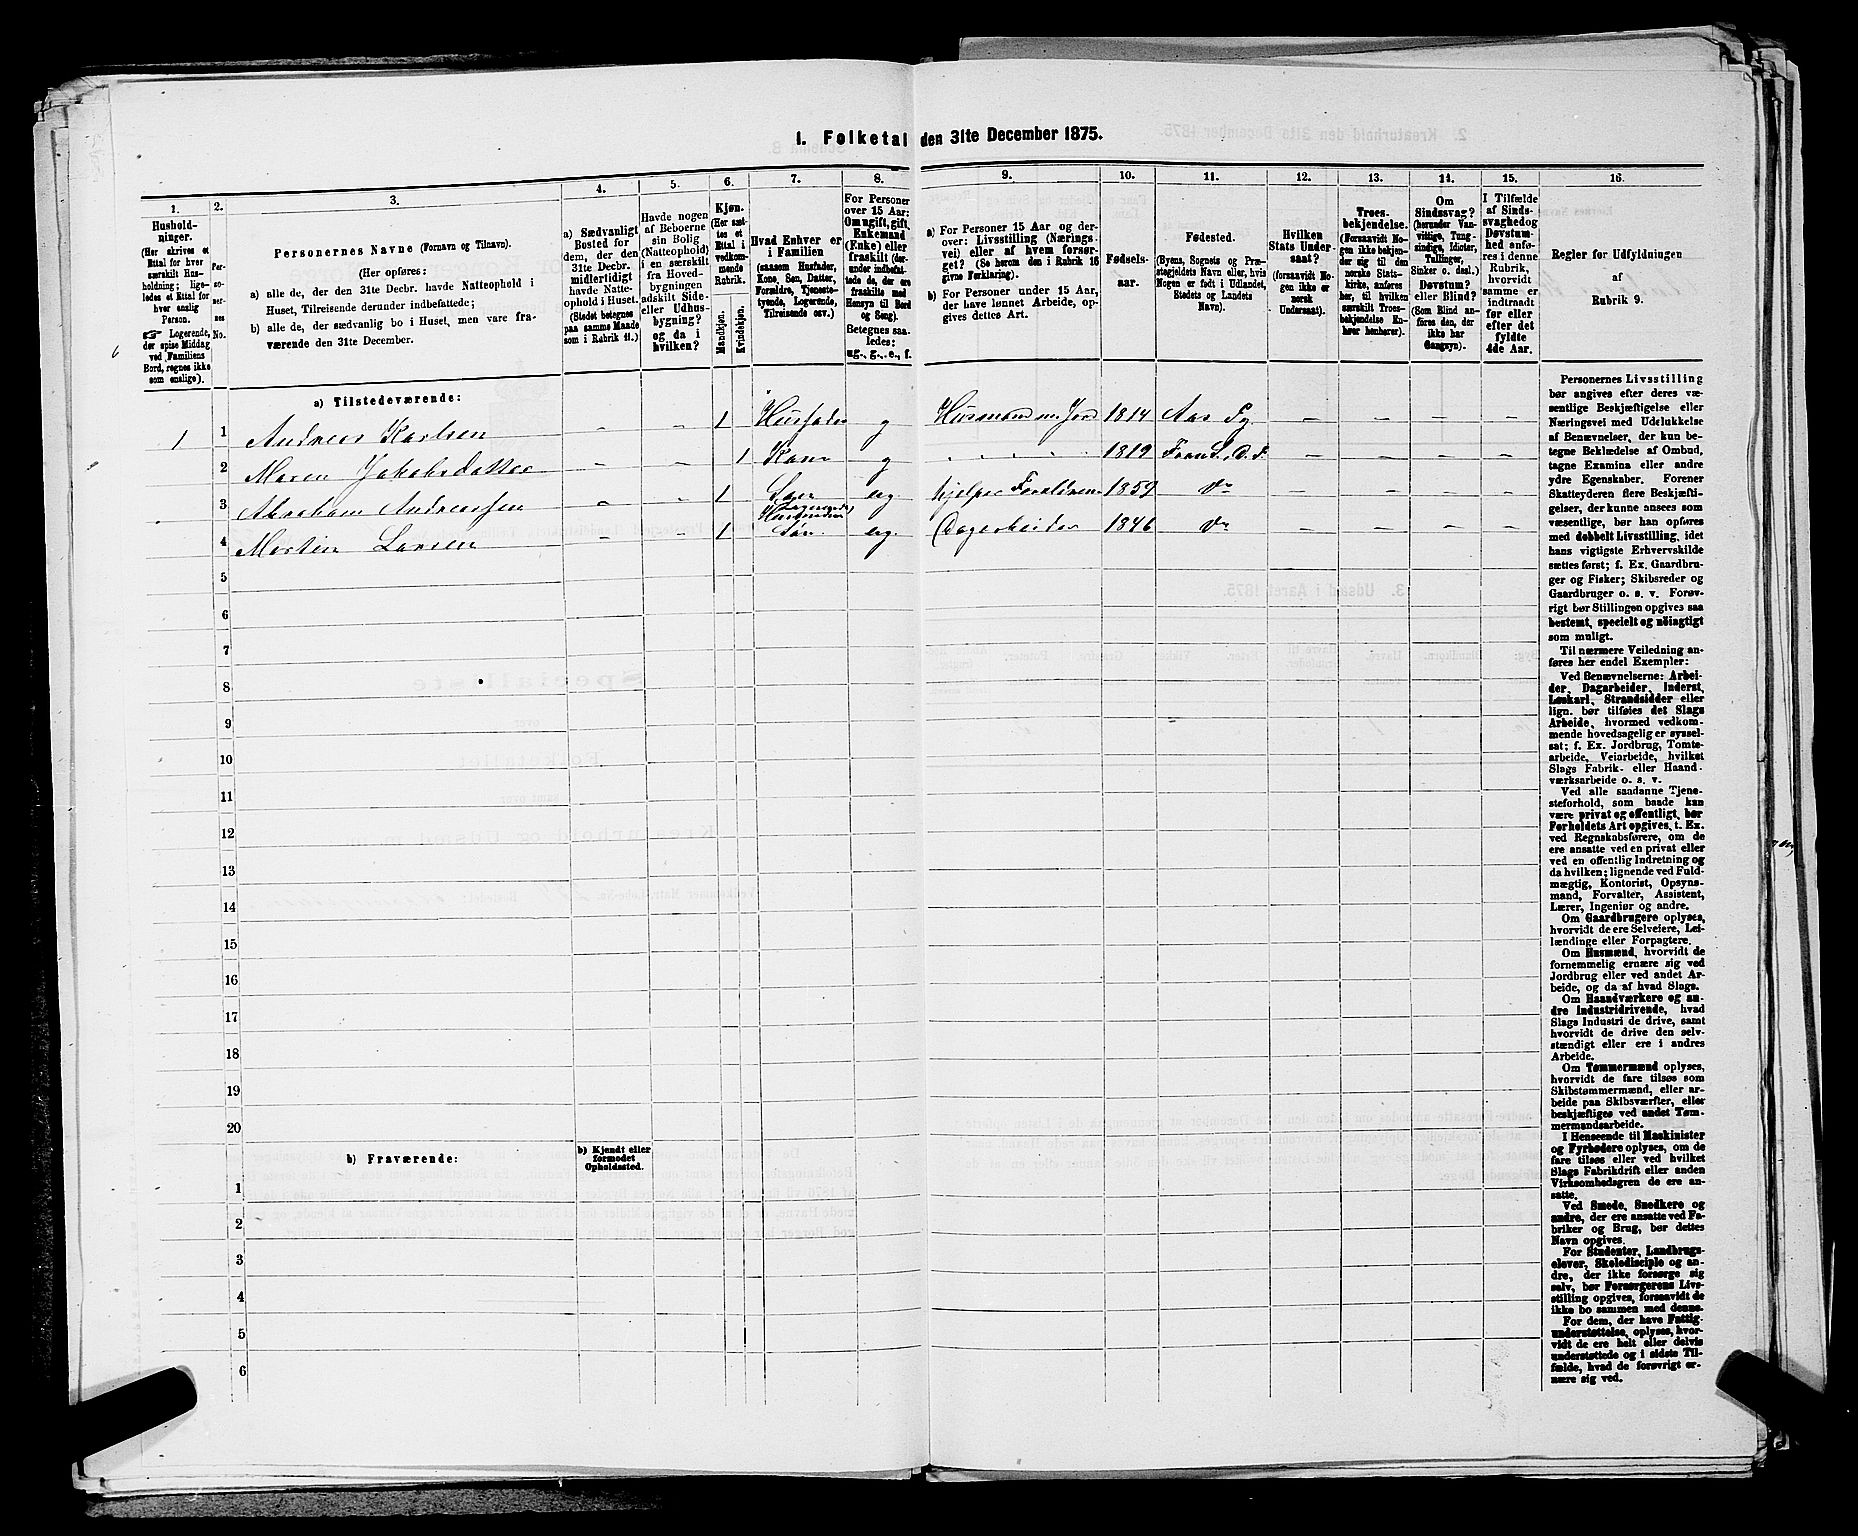 1. Folketal den 31te December 1875.
1.
Hushold-
ninger.
(Her skrives et
Ettal for hver
særskilt Hus-
holdning; lige-
ledes et Ettal for
hver enslig
Person.
☞ Logerende,
der spise Middag
ved Familiens
Bord, regnes ikke
som enslige).
2.
Per-
so-
ner-
nes
No.
3.
Personernes Navne (Fornavn og Tilnavn).
(Her opføres:
a) alle de, der den 31te Decbr. havde Natteophold i
Huset, Tilreisende derunder indbefattede;
b) alle de, der sædvanlig bo i Huset, men vare fra-
værende den 31te December.
4.
a) Sædvanligt
Bosted for
dem, der den
31te Decbr.
midlertidigt
havde Natte-
ophold i Huset.
(Stedet betegnes
paa samme Maade
som i Rubrik 11.)
5.
Havde nogen
af Beboerne
sin Bolig
(Natteophold)
i en særskilt
fra Hoved-
bygningen
adskilt Side-
eller Udhus-
bygning?
og da i
hvilken?
6.
Kjøn.
(Her sæt-
tes et
Ettal i
vedkom-
mende
Rubrik.
Mandkjøn.
Kvindekjøn.
7.
Hvad Enhver er
i Familien
(saasom Husfader,
Kone, Søn, Datter,
Forældre, Tjeneste-
tyende, Logerende,
Tilreisende osv.)
8.
For Personer
over 15 Aar:
Om ugift, gift,
Enkemand
(Enke) eller
fraskilt (der-
under indbefat-
tede de, der ere
fraskilte med
Hensyn til Bord
og Seng).
Betegnes saa-
ledes:
ug., g., e., f.
9.
a) For Personer 15 Aar og der-
over: Livsstilling (Nærings-
vei) eller af hvem forsør-
get? (Se herom den i Rubrik 16
givne Forklaring).
b) For Personer under 15 Aar,
der have lønnet Arbeide, op-
gives dettes Art.
10.
Fødsels-
aar.
11.
Fødested.
(Byens, Sognets og Præ-
stegjeldets Navn eller, hvis
Nogen er født i Udlandet,
Stedets og Landets
Navn).
12.
Hvilken
Stats Under-
saat?
(forsaavidt No-
gen ikke er
norsk
Undersaat).
13.
Troes-
bekjendelse.
(Forsaavidt No-
gen ikke beken-
der sig til den
norske Stats-
kirke, anføres
her, til hvilken
særskilt Troes-
bekjendelse En-
hver henhører).
14.
Om
Sindssvag?
(herunder Van-
vittige, Tung-
sindige, Idioter,
Tullinger,
Sinker o. desl.)
Døvstum?
eller Blind?
(Som Blind an-
føres den, der
ikke har
Gangsyn).
15.
I Tilfælde
af Sinds-
svaghed og
Døvstum-
hed anfø-
res i denne
Rubrik,
hvorvidt
samme er
indtraadt
før eller
efter det
fyldte
4de Aar.
16.
Regler for Udfyldningen
af
Rubrik 9.
a) Tilstedeværende:
1 1 Andreas Karlsen - - 1 Husfader g Husmand m. Jord 1814 Aas Pg. - - - -
2 Maren Jakobsdatter - - 1 Kone g 1819 - - - -
3 Abraham Andreassen - - 1 Søn ug. hjelper Forældrene 1859 do - - - -
4 Martin Larsen - - 1 Søn ug. Dagarbeider 1846 do - - - -
5
6
7
8
9
10
11
12
13
14
15
16
17
18
19
20
b) Fraværende:
b) Kjendt eller
formodet
Opholdssted.
1
2
3
4
5
6
Personernes Livsstilling
bør angives efter deres væ-
sentlige Beskjæftigelse eller
Næringsvei med Udelukkelse
af Benævnelser, der kun be-
tegne Beklædelse af Ombud,
tagne Examina eller andre
ydre Egenskaber. Forener
Skatteyderen flere Beskjæfti-
gelser, der kunne ansees som
væsentlige, bør han opføres
med dobbelt Livsstilling, idet
hans vigtigste Erhvervskilde
sættes først; f. Ex. Gaardbru-
ger og Fisker; Skibsreder og
Gaardbruger o. s. v. Forøv-
rigt bør Stillingen opgives saa
bestemt, specielt og nøiagtigt
som muligt.
Til nærmere Veiledning an-
føres her endel Exempler:
Ved Benævnelserne: Arbei-
der, Dagarbeider, Inderst,
Løskarl, Strandsidder eller
lign. bør tilføies det Slags
Arbeide, hvormed vedkom-
mende hovedsagelig er syssel-
sat; f. Ex. Jordbrug, Tomte-
arbeide, Veiarbeide, hvilket
Slags Fabrik- eller Haand-
værksarbeide o. s. v.
Ved alle saadanne Tjene-
steforhold, som baade kan
være privat og offentligt, bør
Forholdets Art opgives, t. Ex.
ved Regnskabsførere, om de
ere ansatte ved en privat eller
ved en offentlig Indretning og
da hvilken; lignende ved Fuld-
mægtig, Kontorist, Opsyns-
mand, Forvalter, Assistent,
Lærer, Ingeniør og andre.
Om Gaardbrugere oplyses,
hvorvidt de ere Selveiere, Lei-
lændinge eller Forpagtere.
Om Husmænd, hvorvidt de
fornemmelig ernære sig ved
Jordbrug eller ved andet Ar-
beide, og da af hvad Slags.
Om Haandværkere og an-
dre Industridrivende, hvad
Slags Industri de drive, samt
hvorvidt de drive den selv-
stændigt eller ere i andres
Arbeide.
Om Tømmermænd oplyses,
hvorvidt de fare tilsøs som
Skibstømmermænd, eller ar-
beide paa Skibsværfter, eller
beskjæftiges ved andet Tøm-
mermandsarbeide.
I Henseende til Maskinister
og Fyrbødere oplyses, om de
fare tilsøs eller ved hvilket
Slags Fabrikdrift eller anden
Virksomhedsgren de ere an-
satte.
Ved Smede, Snedkere og
andre, der ere ansatte ved Fa-
briker og Brug, bør dettes
Navn opgives.
For Studenter, Landbrugs-
elever, Skoledisciple og an-
dre, der ikke forsørge sig
selv, bør Forsørgerens Livs-
stilling opgives, forsaavidt de
ikke bo sammen med denne.
For dem, der have Fattig-
understøttelse, oplyses, hvor-
vidt de ere helt eller delvis
understøttede og i sidste Til-
fælde, hvad de forøvrigt er-
nære sig ved.